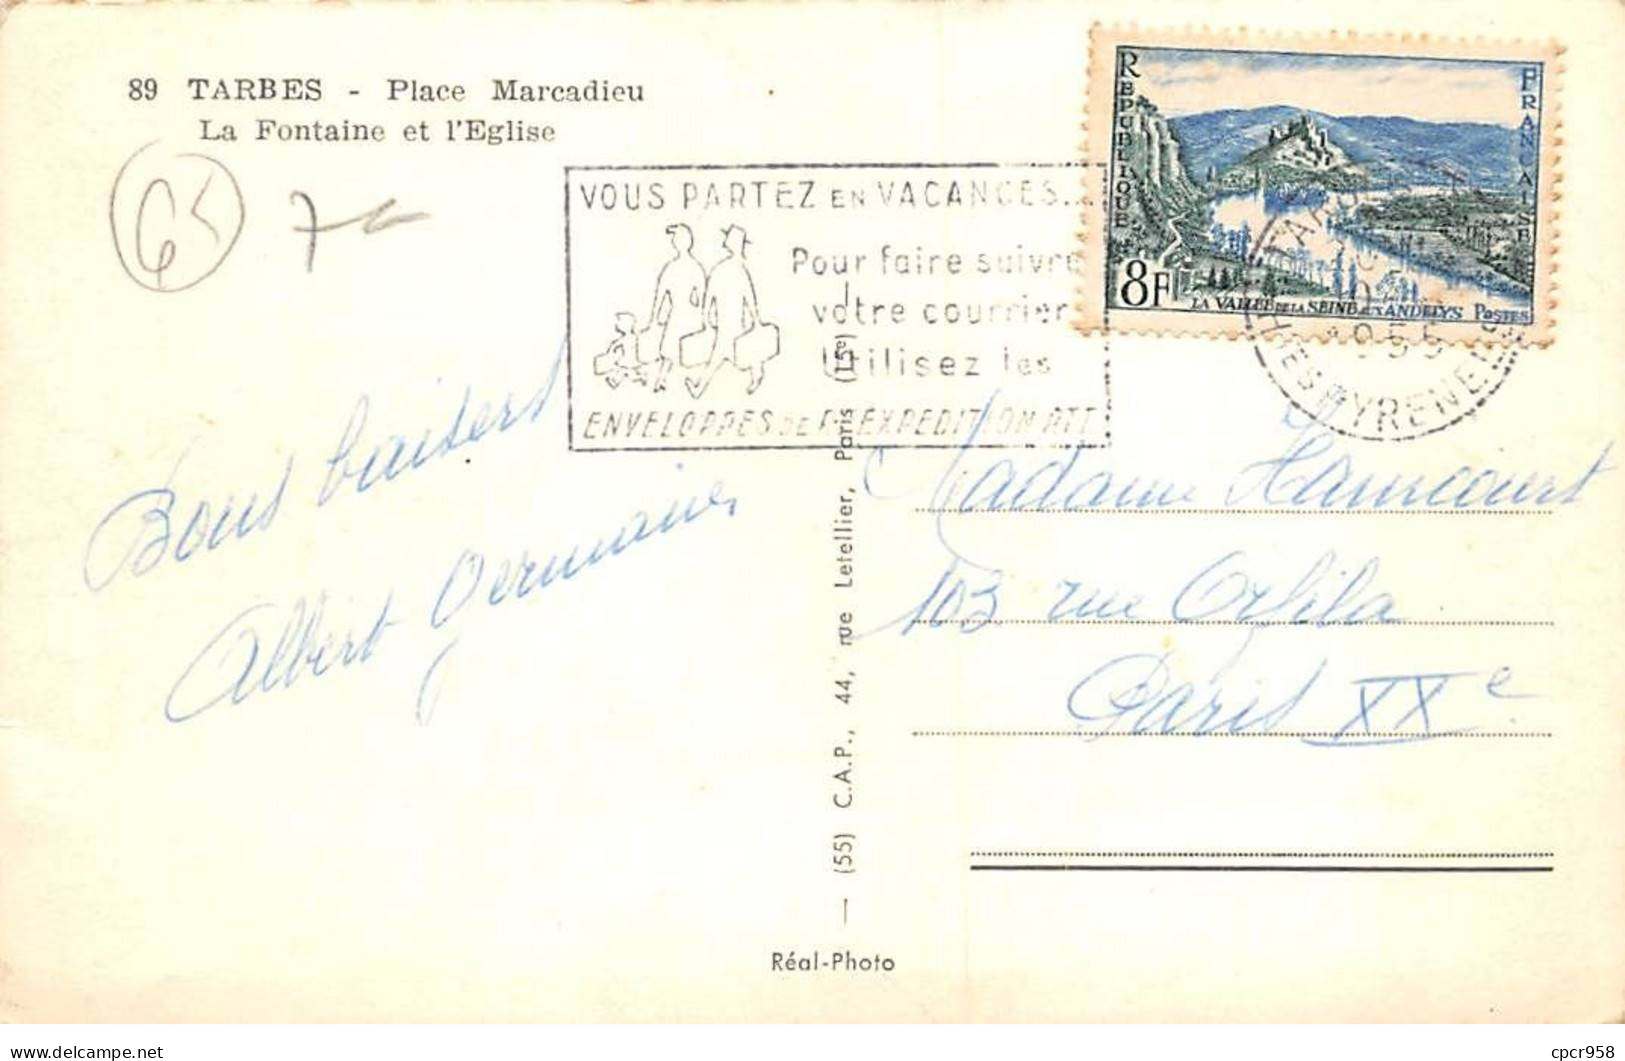 89 TARBES - Place Marcadieu
La Fontaine et l'Eglise
65
VOUS PARTEZ EN VACANCES...
Pour faire suivre
votre courrier
Utilisez les
ENVELOPPES DE REEXPEDITION PTT
REPUBLIQUE
FRANÇAISE
8F
LA VALLÉE DE LA SEINE AUX ANDELYS POSTES
TARBES
1955
HTES PYRENEES
Bons baisers
Albert Germaine
Madame Hamcourt
103 rue Orfila
Paris XXe
(55) C.A.P., 44, rue Letellier, Paris (15e)
Réal-Photo
cpcr958